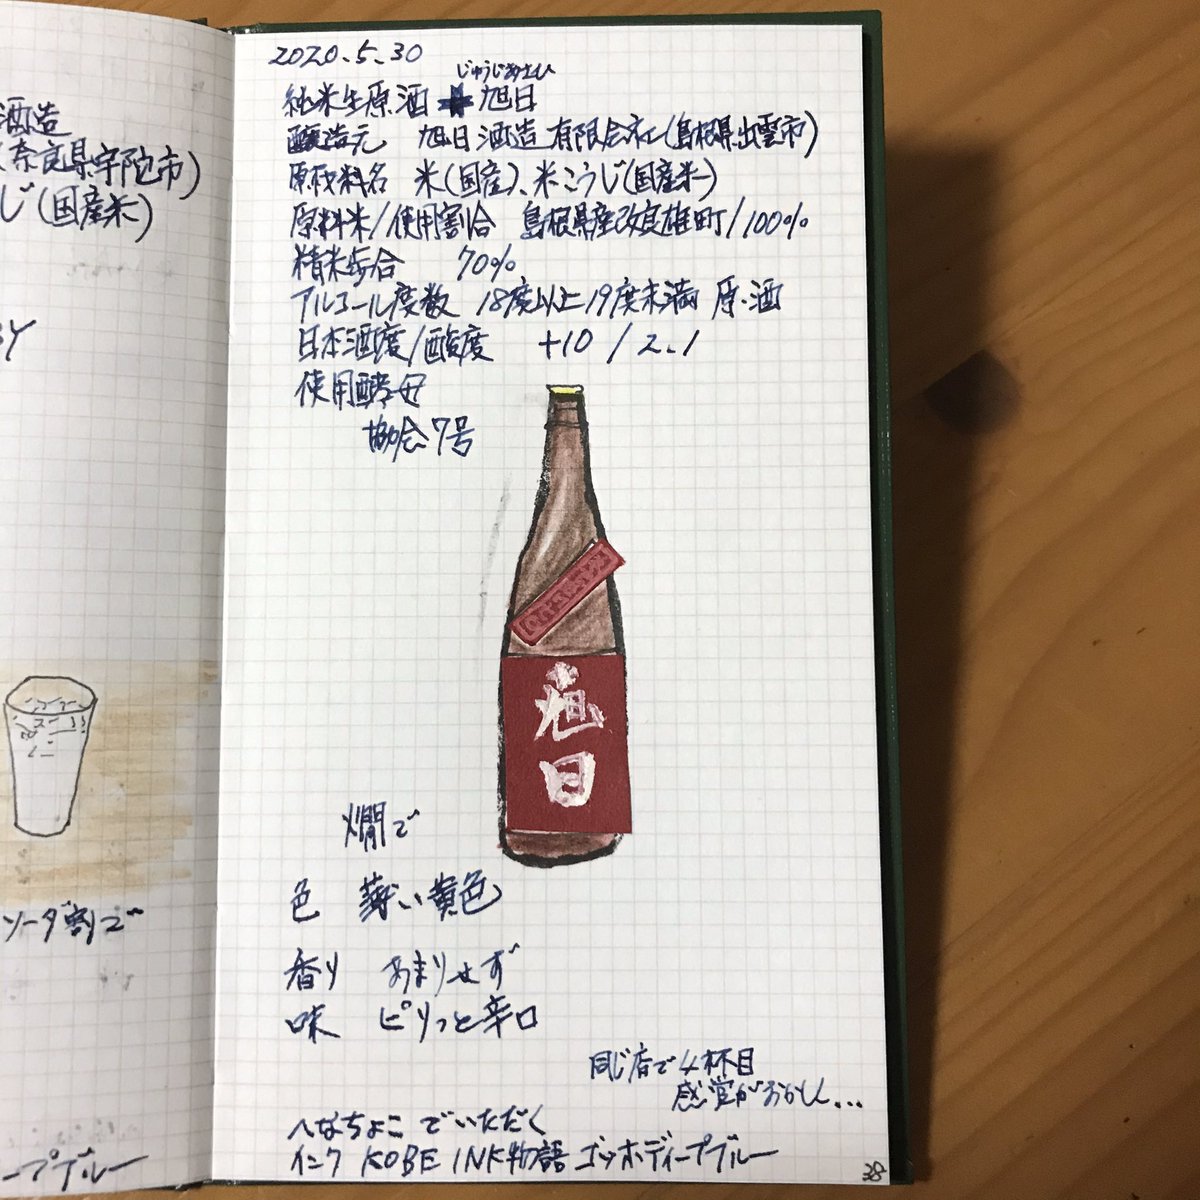 酒造
(奈良県宇陀市)
じ(国産米)
BY
ソーダ割で
ープブルー
2020.5.30
じゅうじあさひ
純米生原酒 十旭日
醸造元 旭日酒造有限会社(島根県出雲市)
原材料名 米(国産)、米こうじ(国産米)
原料米/使用割合 島根県産改良雄町/100%
精米歩合 70%
アルコール度数 18度以上19度未満 原酒
日本酒度/酸度 +10 / 2.1
使用酵母
協会7号
十旭
日
燗で
色 薄い黄色
香り あまりせず
味 ピリっと辛口
同じ店で4杯目
感覚がおかしい…
へなちょこ でいただく
インク KOBE INK物語 ゴッホディープブルー
38